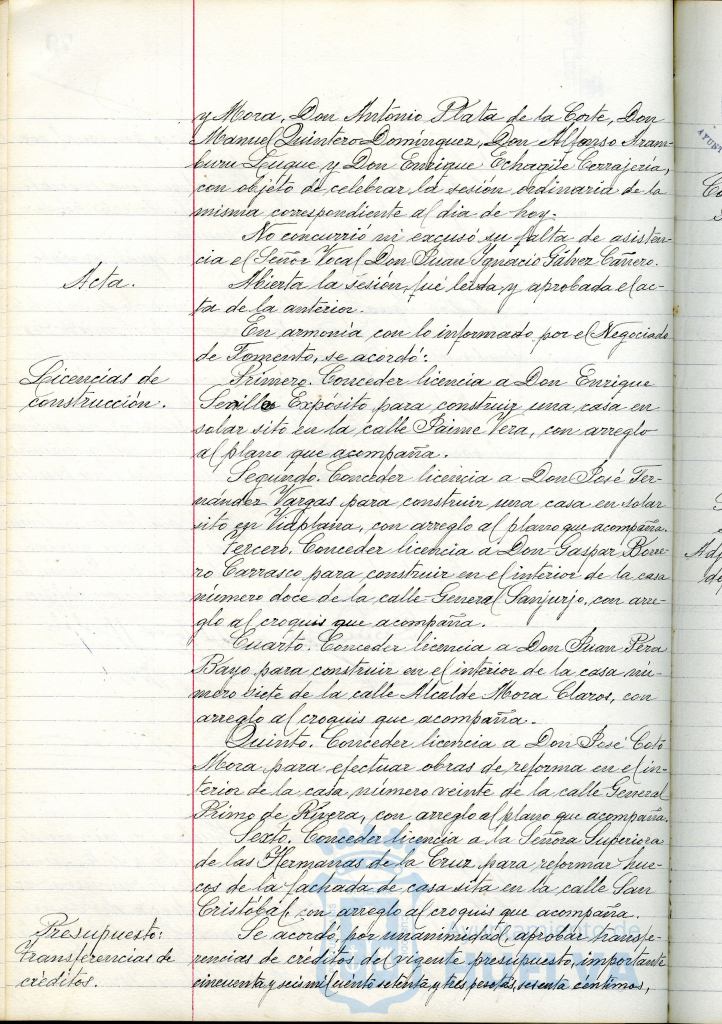 y Mora, Don Antonio Plata de la Corte, Don
Manuel Quintero Domínguez, Don Alfonso Aram-
buru Luque y Don Enrique Echagüe Corrajería,
con objeto de celebrar la sesión ordinaria de la
misma correspondiente al dia de hoy.
No concurrió ni excusó su falta de asisten-
cia el Señor Vocal Don Juan Ignacio Gálvez Cañero.
Acta.
Abierta la sesión, fué leida y aprobada el ac-
ta de la anterior.
En armonía con lo informado por el Negociado
de Fomento, se acordó:
Licencias de
construcción.
Primero. Conceder licencia a Don Enrique
Expósito para construir una casa en
solar sito en la calle Jaime Vera, con arreglo
al plano que acompaña.
Segundo. Conceder licencia a Don José Fer-
nández Vargas para construir una casa en solar
sito en Viaplana, con arreglo al plano que acompaña.
Tercero. Conceder licencia a Don Gaspar Borre-
ro Carrasco para construir en el interior de la casa
número doce de la calle General Sanjurjo, con arre-
glo al croquis que acompaña.
Cuarto. Conceder licencia a Don Juan Pera
Bayo para construir en el interior de la casa nú-
mero siete de la calle Alcalde Mora Claros, con
arreglo al croquis que acompaña.
Quinto. Conceder licencia a Don José Coto
Mora para efectuar obras de reforma en el in-
terior de la casa, número veinte de la calle General
Primo de Rivera, con arreglo al plano que acompaña.
Sexto. Conceder licencia a la Señora Superiora
de las Hermanas de la Cruz para reformar hue-
cos de la fachada de casa sita en la calle San
Cristóbal, con arreglo al croquis que acompaña.
Presupuesto:
transferencias de
créditos.
Se acordó, por unanimidad, aprobar transfe-
rencias de créditos del vigente presupuesto, importante
cincuenta y seis mil ciento setenta y tres pesetas, sesenta céntimos,
Ayuntamiento de
HUELVA